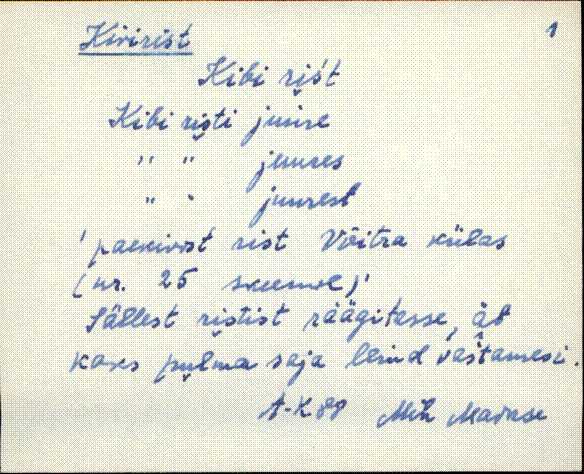 1
Kivirist
Kibi rist
Kibi risti juure
" " juures
" " juurest
'paekivist rist Võitra külas
(nr. 25 skeemol)'
Sällest ristist räägitasse, ät
kaks pulma saja
A-K 88 Mih